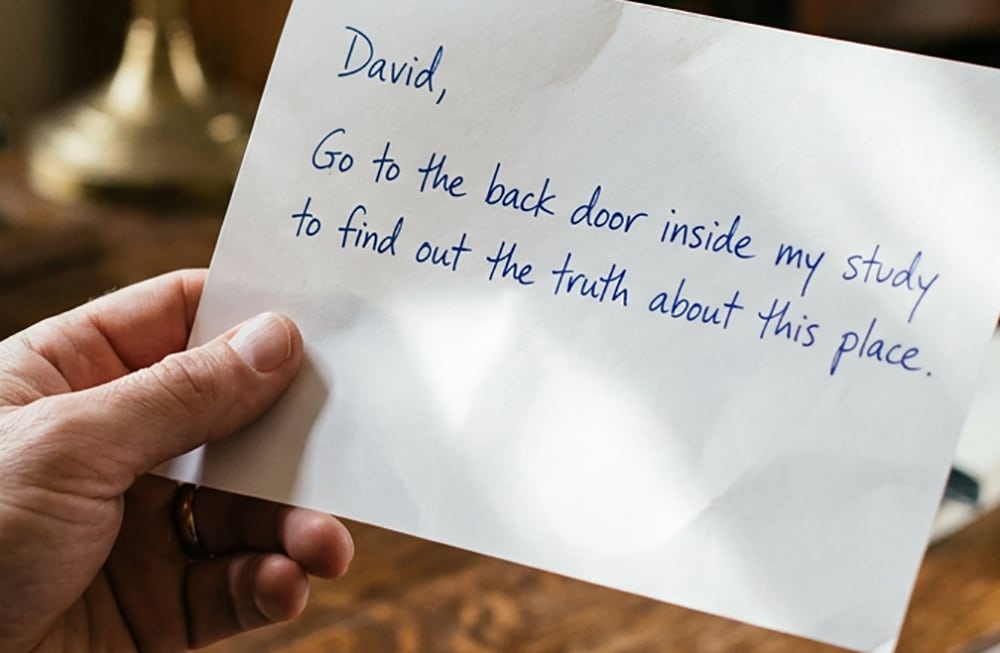 David,
Go to the back door inside my study
to find out the truth about this place.